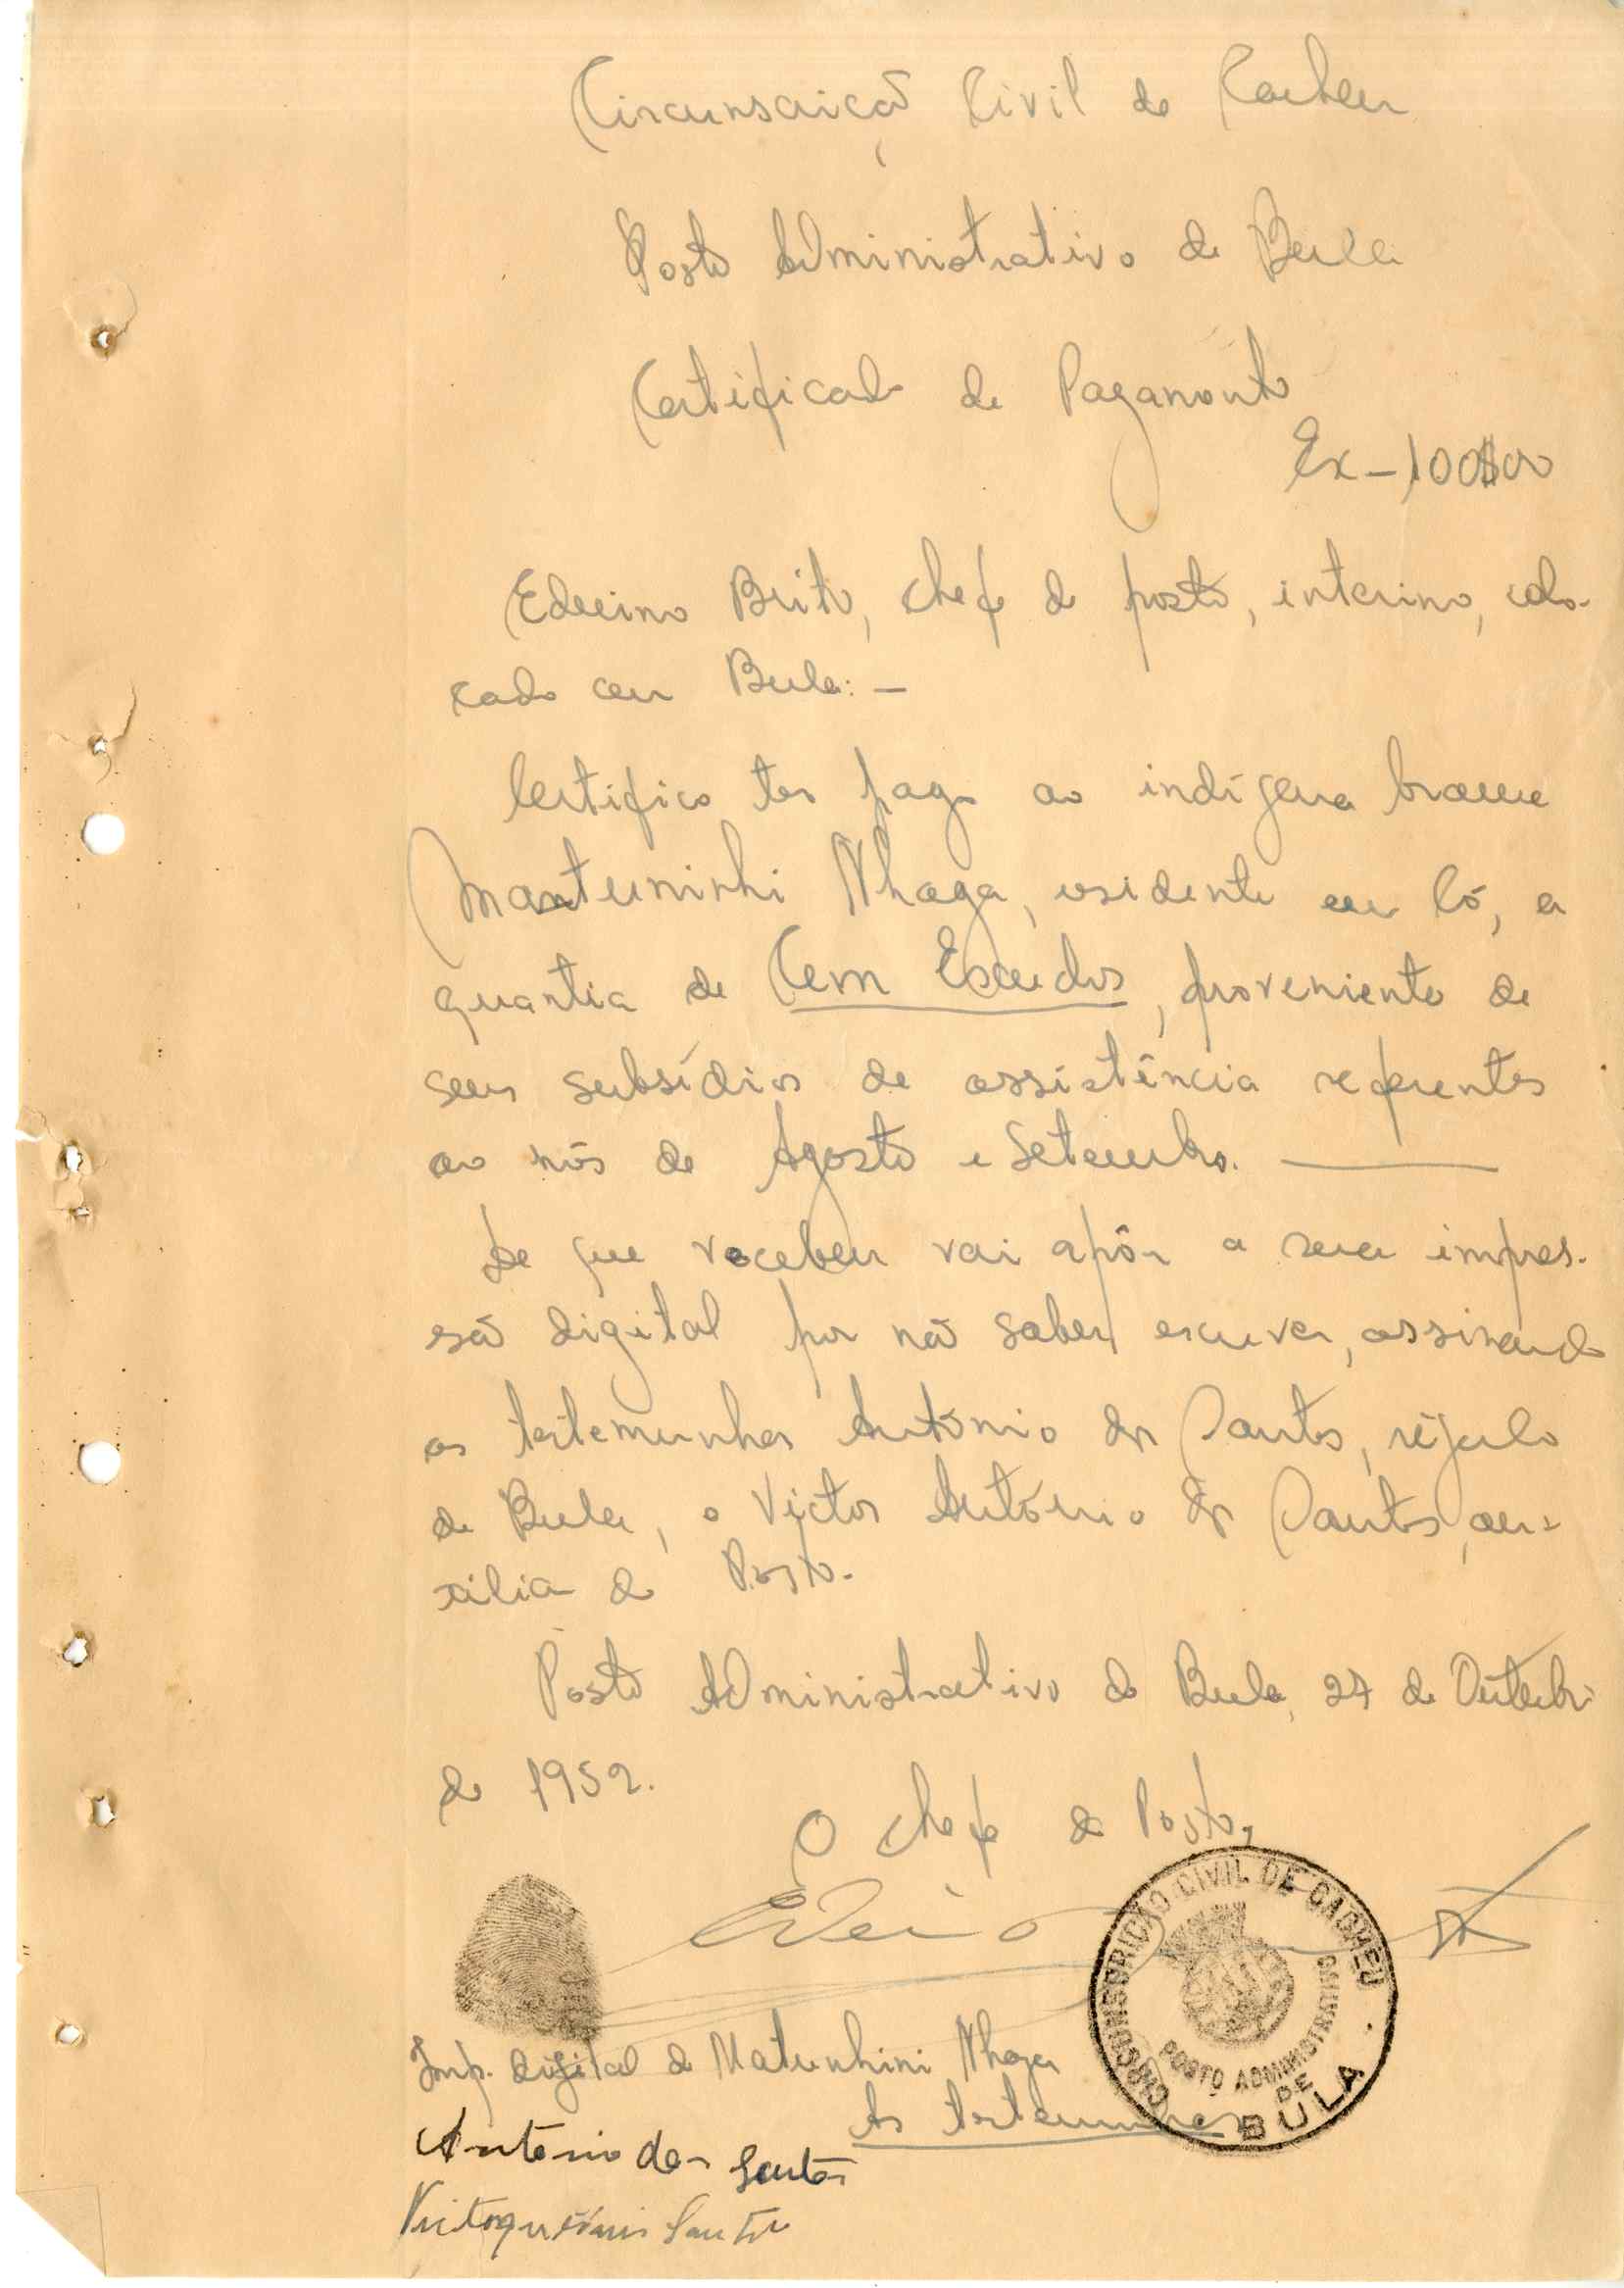 Circunscrição Civil de Cacheu
Posto Administrativo de Bula
Certificado de Pagamento
Ex – 100$00
Brito, chefe de posto, interino, colo-
cado em Bula: –
Certifico ter pago ao indígena brame
Nhaga, residente em Có, a
quantia de Cem Escudos, proveniente de
seus subsídios de assistência referentes
ao mês de Agosto e Setembro.
De que recebeu vai apôr a sua impres-
são digital por não saber escrever, assinando
as testemunhas António dos Santos, régulo
de Bula, e Victor António dos Santos, au-
xiliar do Posto.
Posto Administrativo de Bula, 27 de Outubro
de 1952.
O Chefe de Posto,
CIRCUNSCRIÇÃO CIVIL DE CACHEU
POSTO ADMINISTRATIVO
DE
BULA
Imp. digital de Matunhini Nhaga
As testemunhas
António dos Santos
Santos